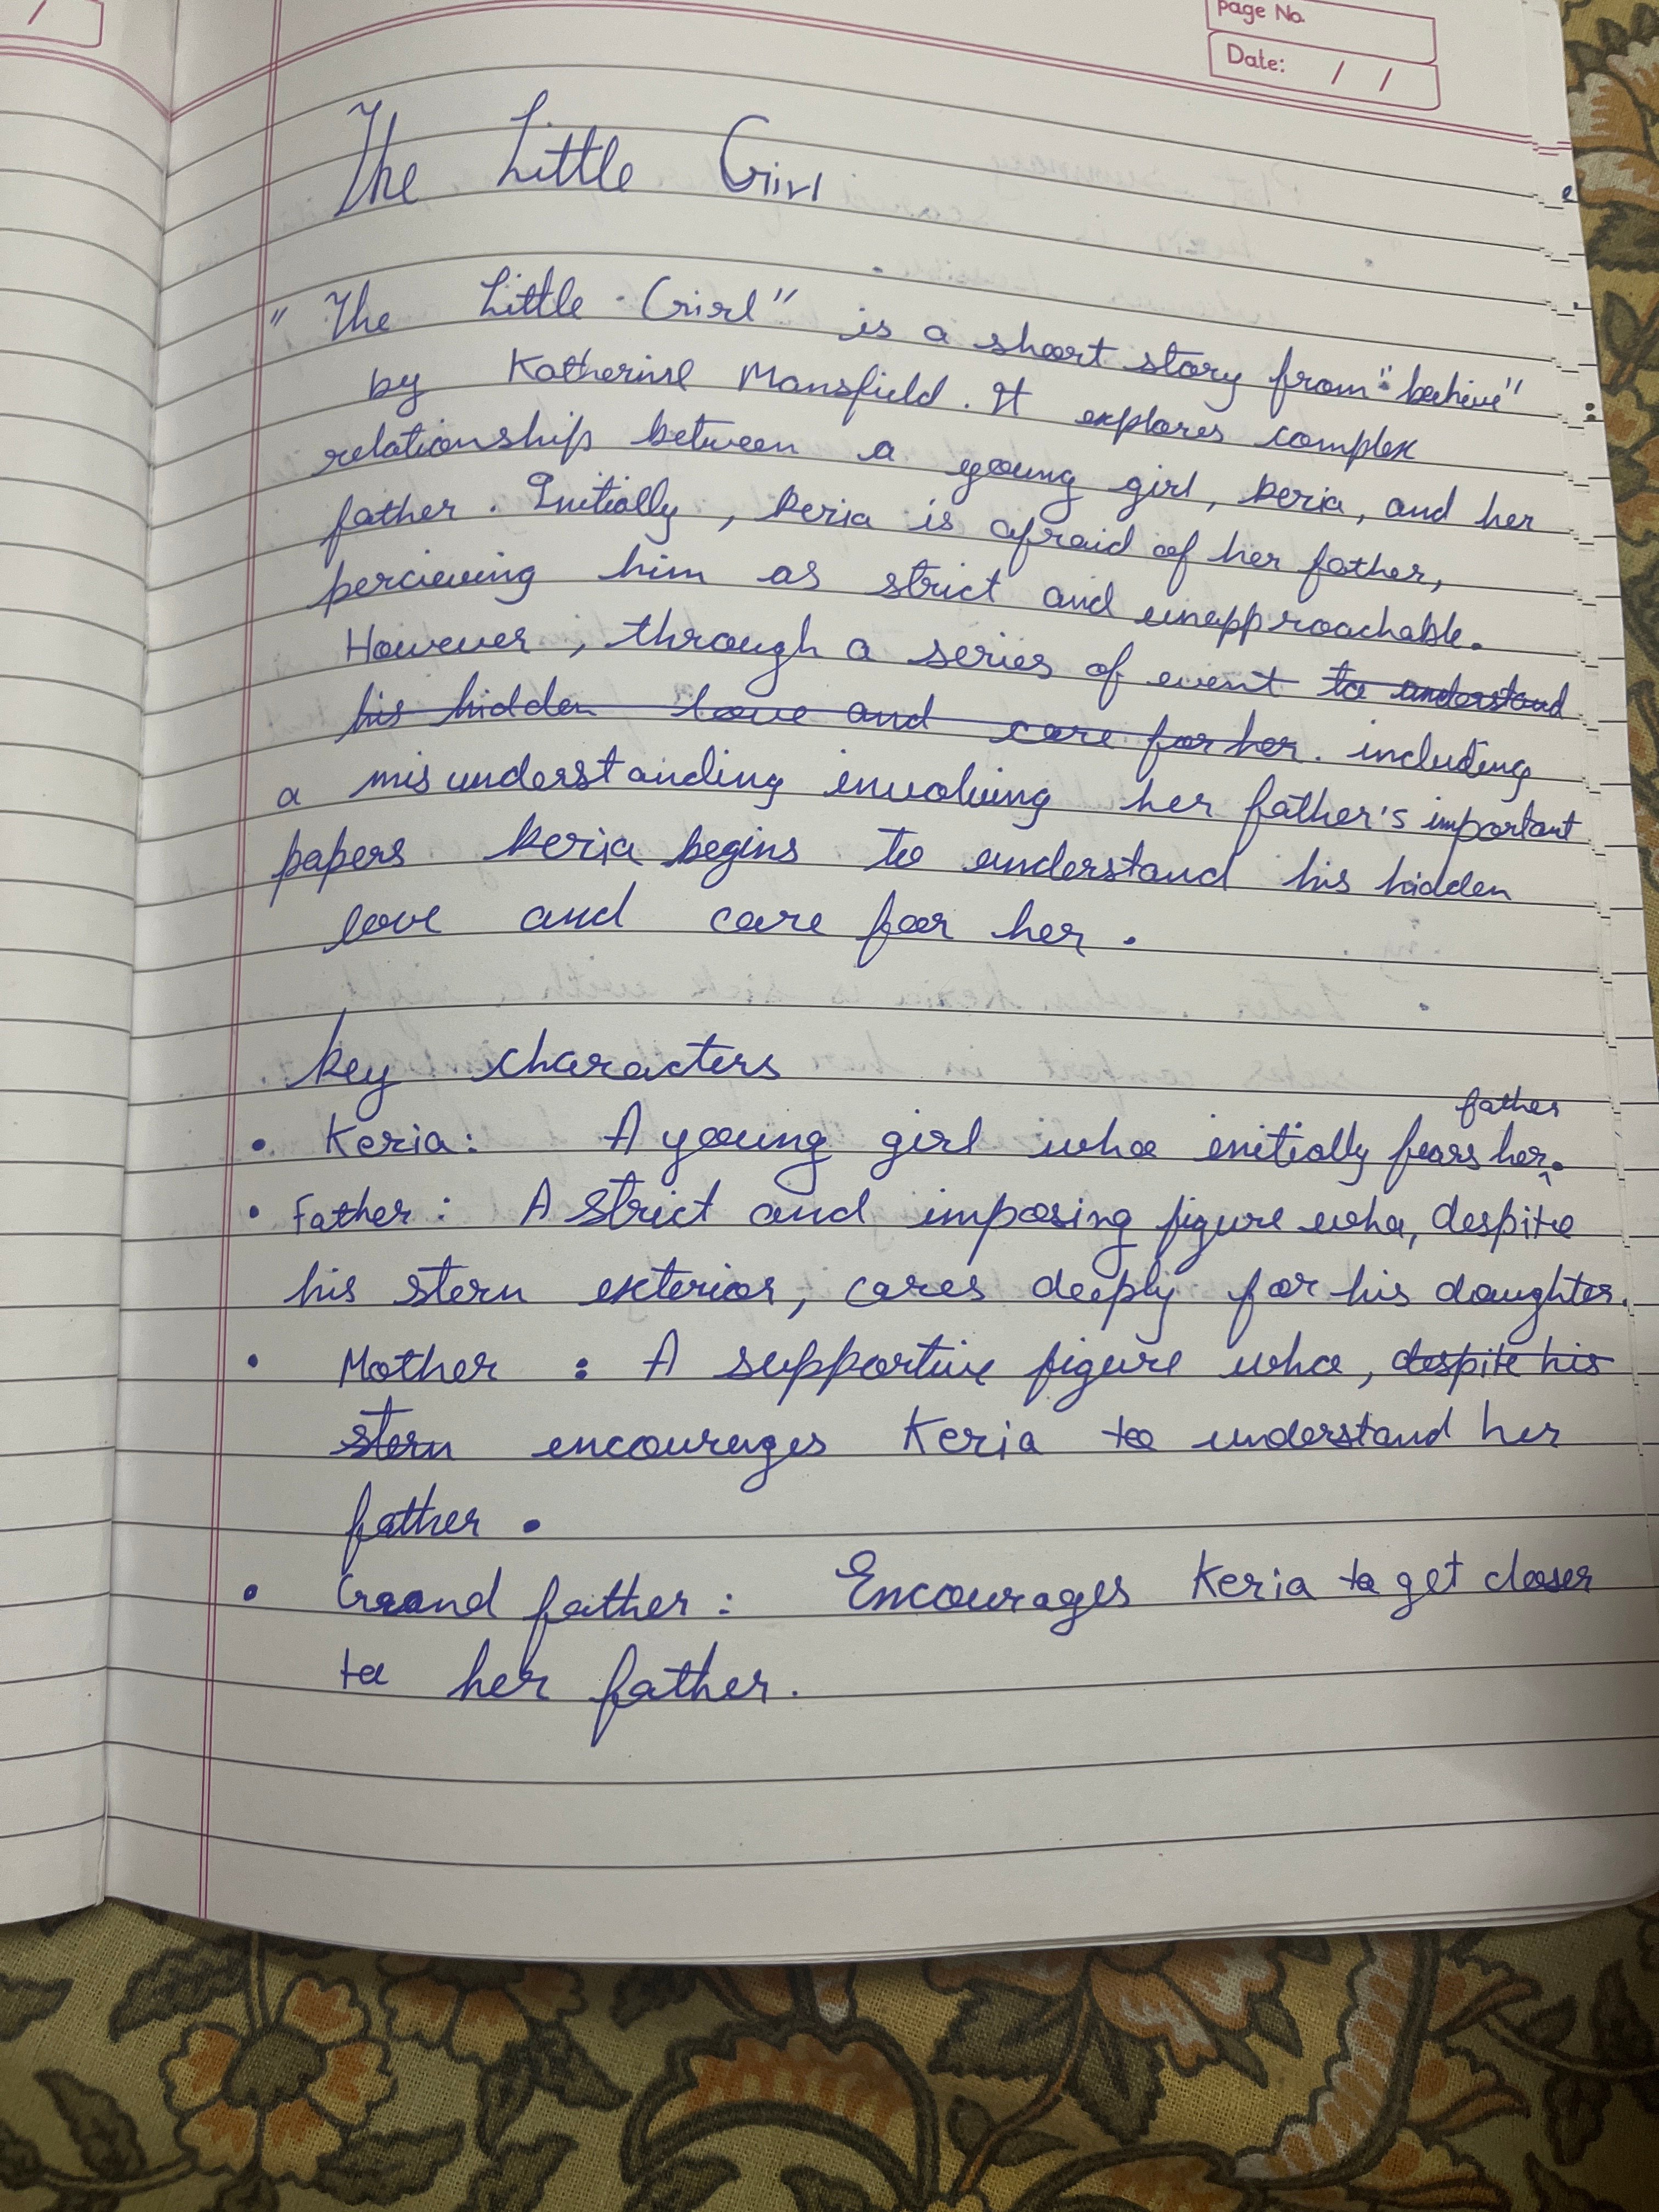 Page No.
Date: / /
The Little Girl
"The Little Girl" is a short story from "beehive"
by Katherine Mansfield. It explores complex
relationship between a young girl, keria, and her
father. Initially, keria is afraid of her father,
percieving him as strict and unapproachable.
However, through a series of event to understand
his hidden love and care for her. including
a misunderstanding involving her father's important
papers keria begins to understand his hidden
love and care for her.
key characters
father
• Keria: A young girl who initially fears her.
• Father: A strict and imposing figure who, despite
his stern exterior, cares deeply for his daughter.
• Mother : A supportive figure who, despite his
stern encourages Keria to understand her
father.
• Grand father: Encourages Keria to get closer
to her father.